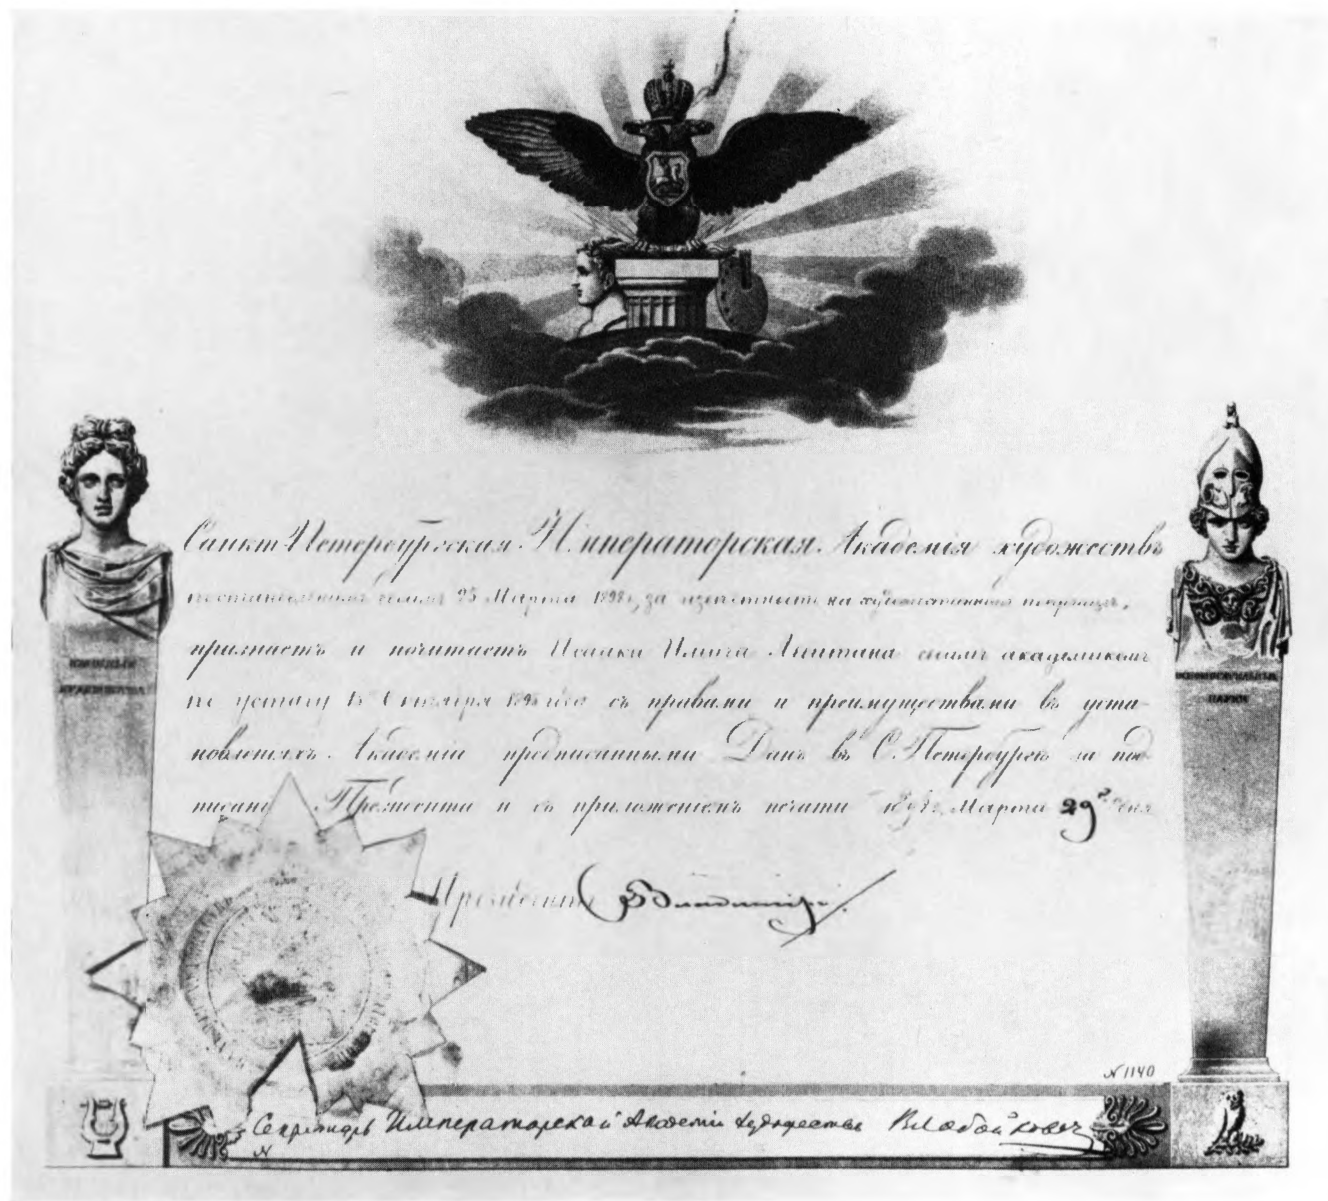 Санкт Петербургская Императорская Академія художествъ
25 Марта 1898 г, за извѣстность на художественномъ поприщѣ,
признаетъ и почитаетъ Исаака Ильича Левитана своимъ академикомъ
по уставу 15 Октября 1893 года съ правами и преимуществами въ уста-
новленіяхъ Академіи предписанными Данъ въ С. Петербургѣ за под
писаніемъ Президента и съ приложеніемъ печати 1898 г. Марта 29 дня
Президентъ Владиміръ
N 1140
Секретарь Императорской Академіи Художествъ В Лобойковъ
N
ИЗЯЩНЫЯ
ХУДОЖЕСТВА
НАУКИ